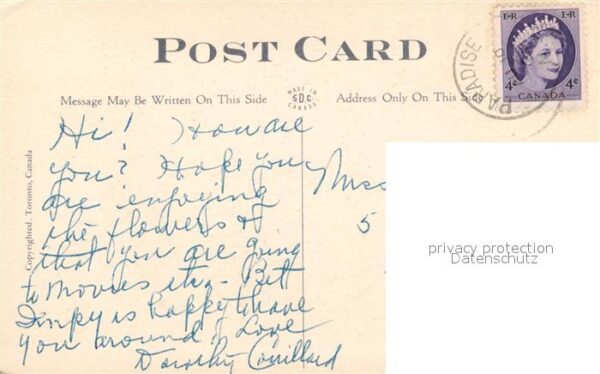 POST CARD
E R E R
4¢ 4¢
CANADA
PARADISE
Message May Be Written On This Side
MADE IN
SDC
CANADA
Address Only On This Side
Hi! How are
you? Hope you
are enjoying
the flowers &
that you are going
to movies etc. - Bett
is happy to have
you around. Love
Dorothy Couillard
Miss
5
Copyrighted. Toronto, Canada
privacy protection
Datenschutz